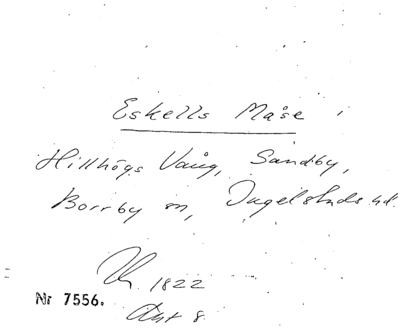 Eskells Måse i
Hillhögs Vång, Sandby,
Borrby sn, Ingelstads hd.
1822
Nr 7556.
Akt 8.